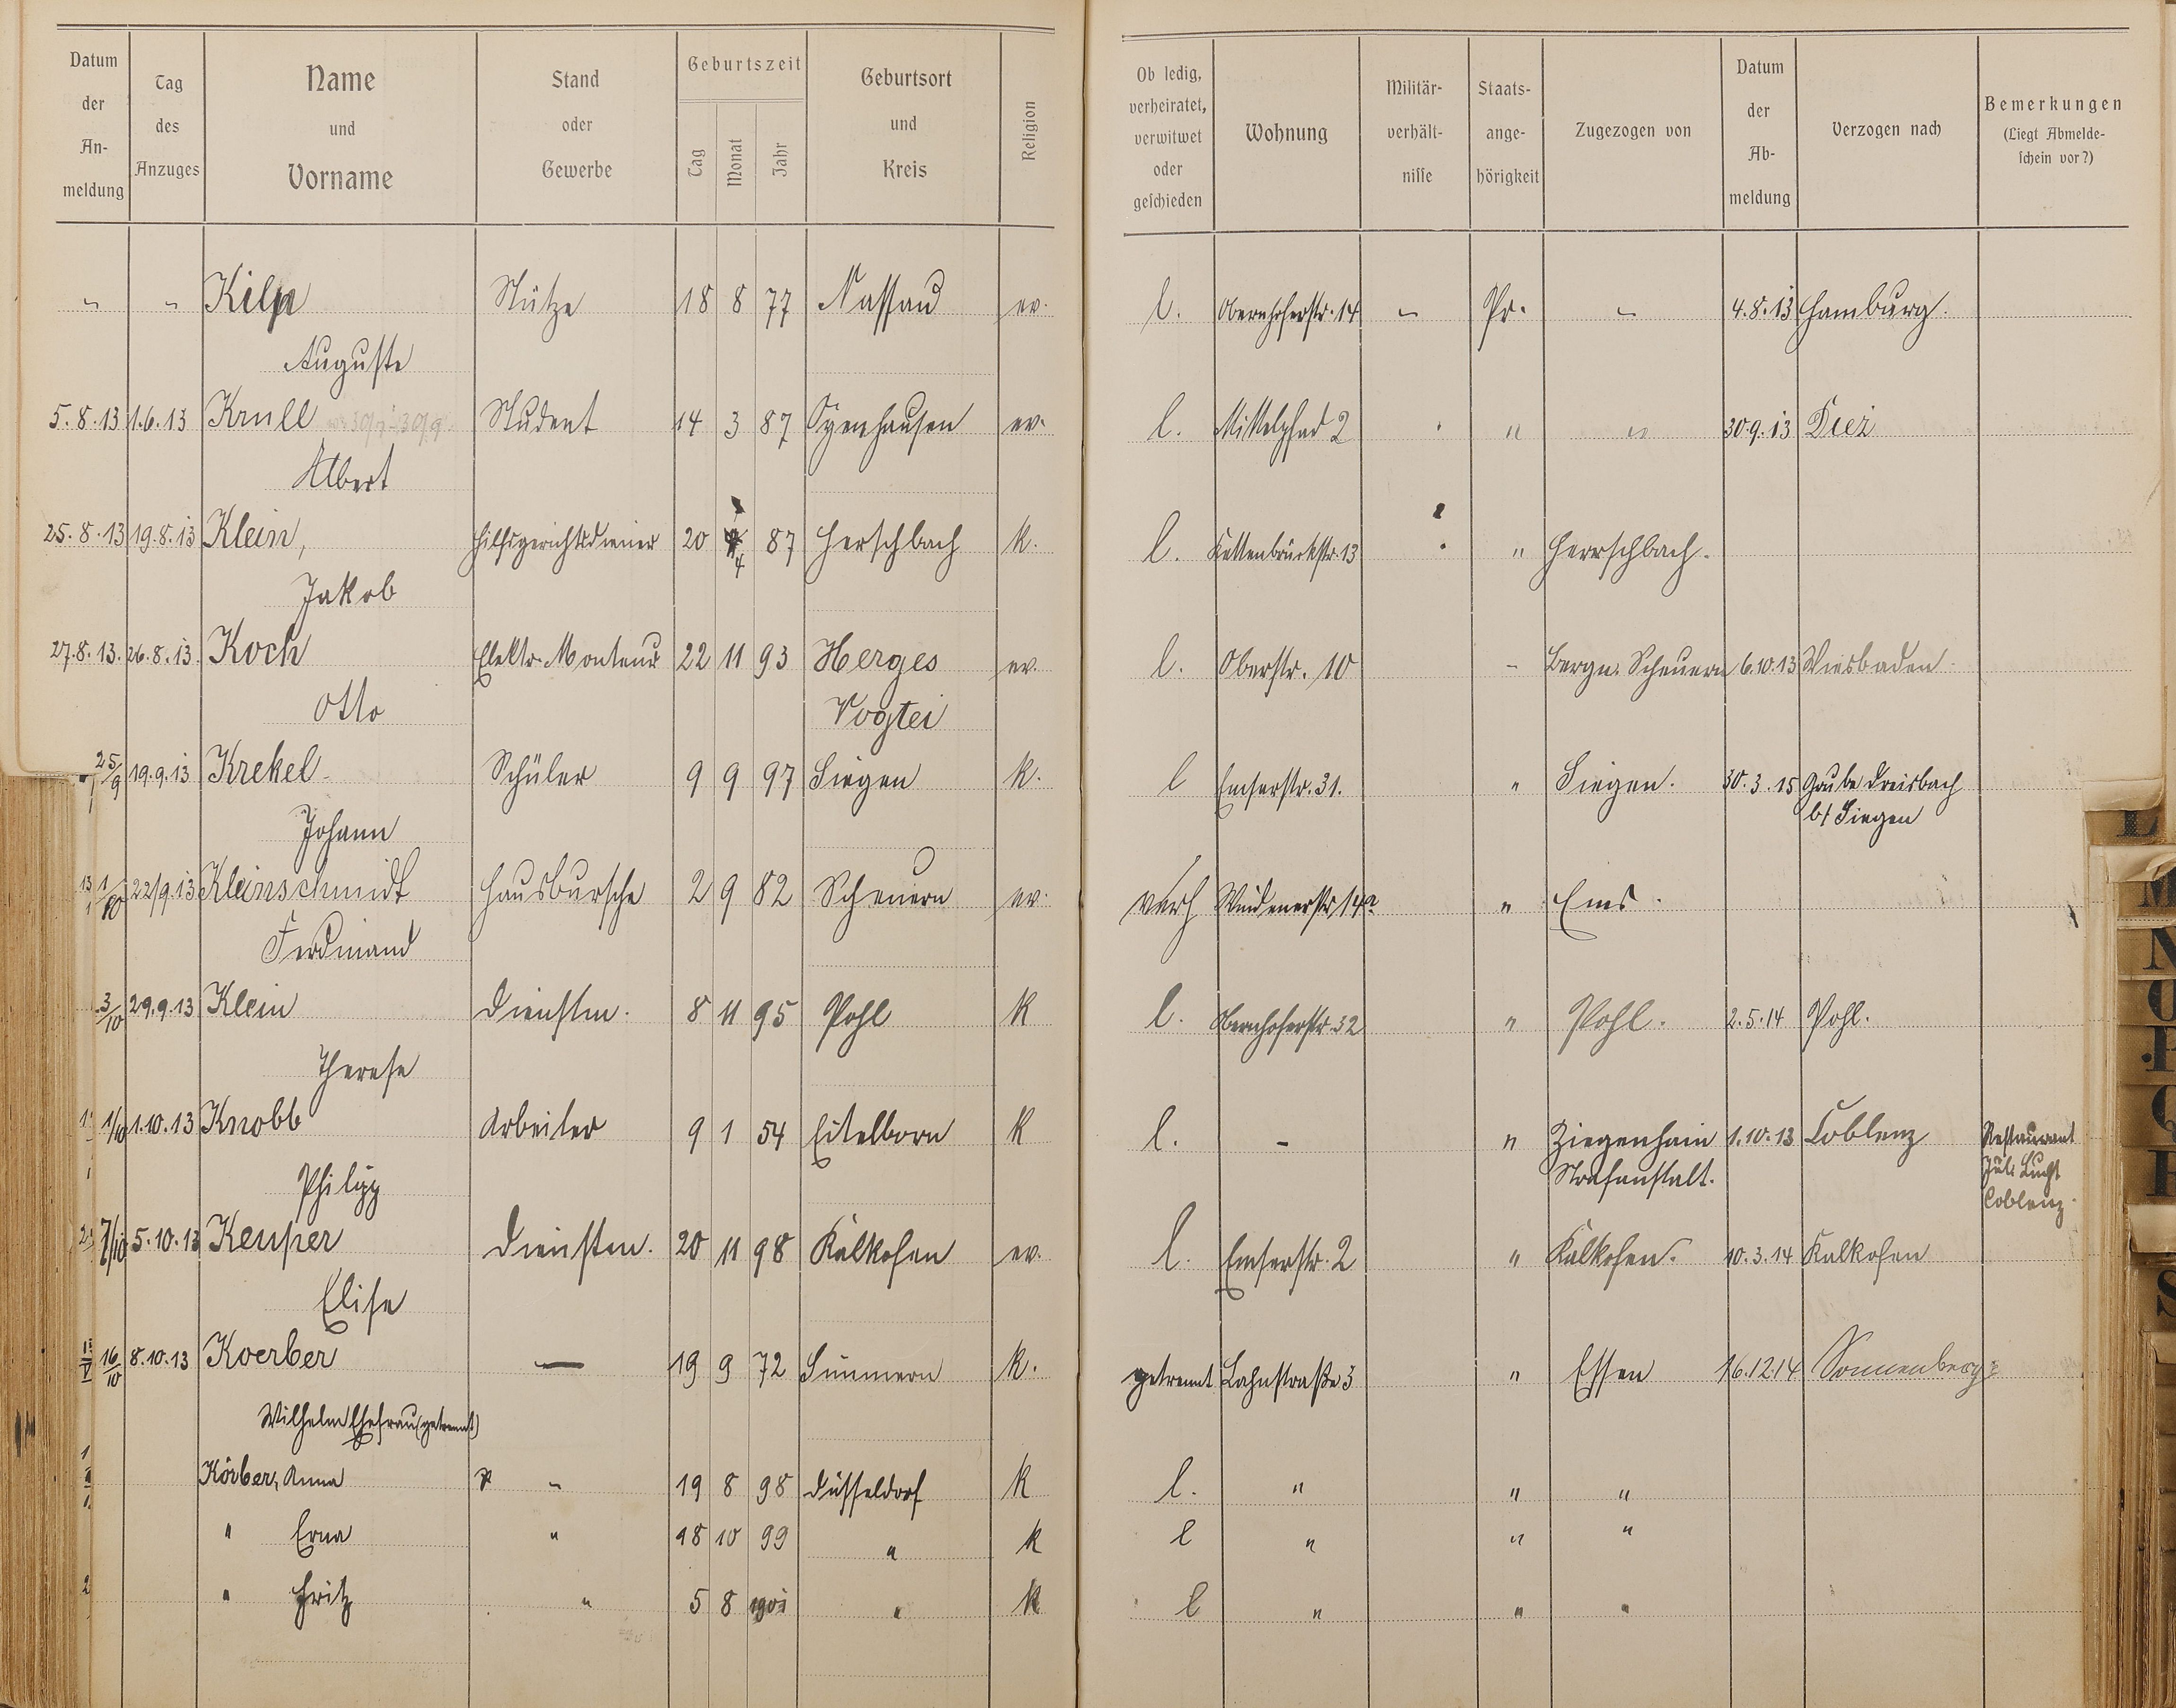 Datum der An-meldung
Tag des Anzuges
Name und Vorname
Stand oder Gewerbe
Geburtszeit
Tag Monat Jahr
Geburtsort und Kreis
Religion
Ob ledig, verheiratet, verwitwet oder geschieden
Wohnung
Militär-verhält-nisse
Staats-ange-hörigkeit
Zugezogen von
Datum der Ab-meldung
Verzogen nach
Bemerkungen
(Liegt Abmelde-schein vor?)
" " Kilp Stütze 18 8 77 Nassau ev. l. Obernhoferstr. 14 - Pr. - 4.8.13 Hamburg.
Auguste
5.8.13 1.6.13 Krull Student 14 3 87 Oynhausen ev. l. Mittelpfad 2 " " 30.9.13 Diez
Albert
25.8.13 19.8.13 Klein, Hilfsgerichtsdiener 20 4 87 Herschbach k. l. Kettenbrückstr. 13 " Herrschbach.
Jakob
27.8.13. 26.8.13. Koch Elektr. Monteur 22 11 93 Herges ev. l. Oberstr. 10 - Bergn. Scheuern 6.10.13 Wiesbaden
Otto Vogtei
25/9 19.9.13 Krekel Schüler 9 9 97 Siegen k. l Emserstr. 31. " Siegen. 30.3.15 Grube Dreisbach
Johann b/ Siegen
1/10 22/9.13 Kleinschmidt Hausbursche 2 9 82 Scheuern ev. verh Windenerstr 14a " Ems.
Ferdinand
3/10 29.9.13 Klein Dienstm. 8 11 95 Pohl k l. Obernhoferstr. 32 " Pohl. 2.5.14 Pohl.
Therese
1/10 1.10.13 Knobb Arbeiter 9 1 54 Eitelborn k l. - " Ziegenhain 1.10.13 Coblenz Restaurant
Philipp Strafanstalt. Jul.
Coblenz.
7/10 5.10.13 Kemper Dienstm. 20 11 98 Kalkofen ev. l. Emserstr. 2 " Kalkofen. 10.3.14 Kalkofen
Elise
16/10 8.10.13 Koerber — 19 9 72 Simmern k. getrennt Lahnstraße 3 " Essen 16.12.14 Sonnenberg
Wilhelm Ehefrau (getrennt)
Körber, Anna " 19 8 98 Düsseldorf k l. " " "
" Erna " 18 10 99 " k l " " "
" Fritz " 5 8 1901 " k l " " "